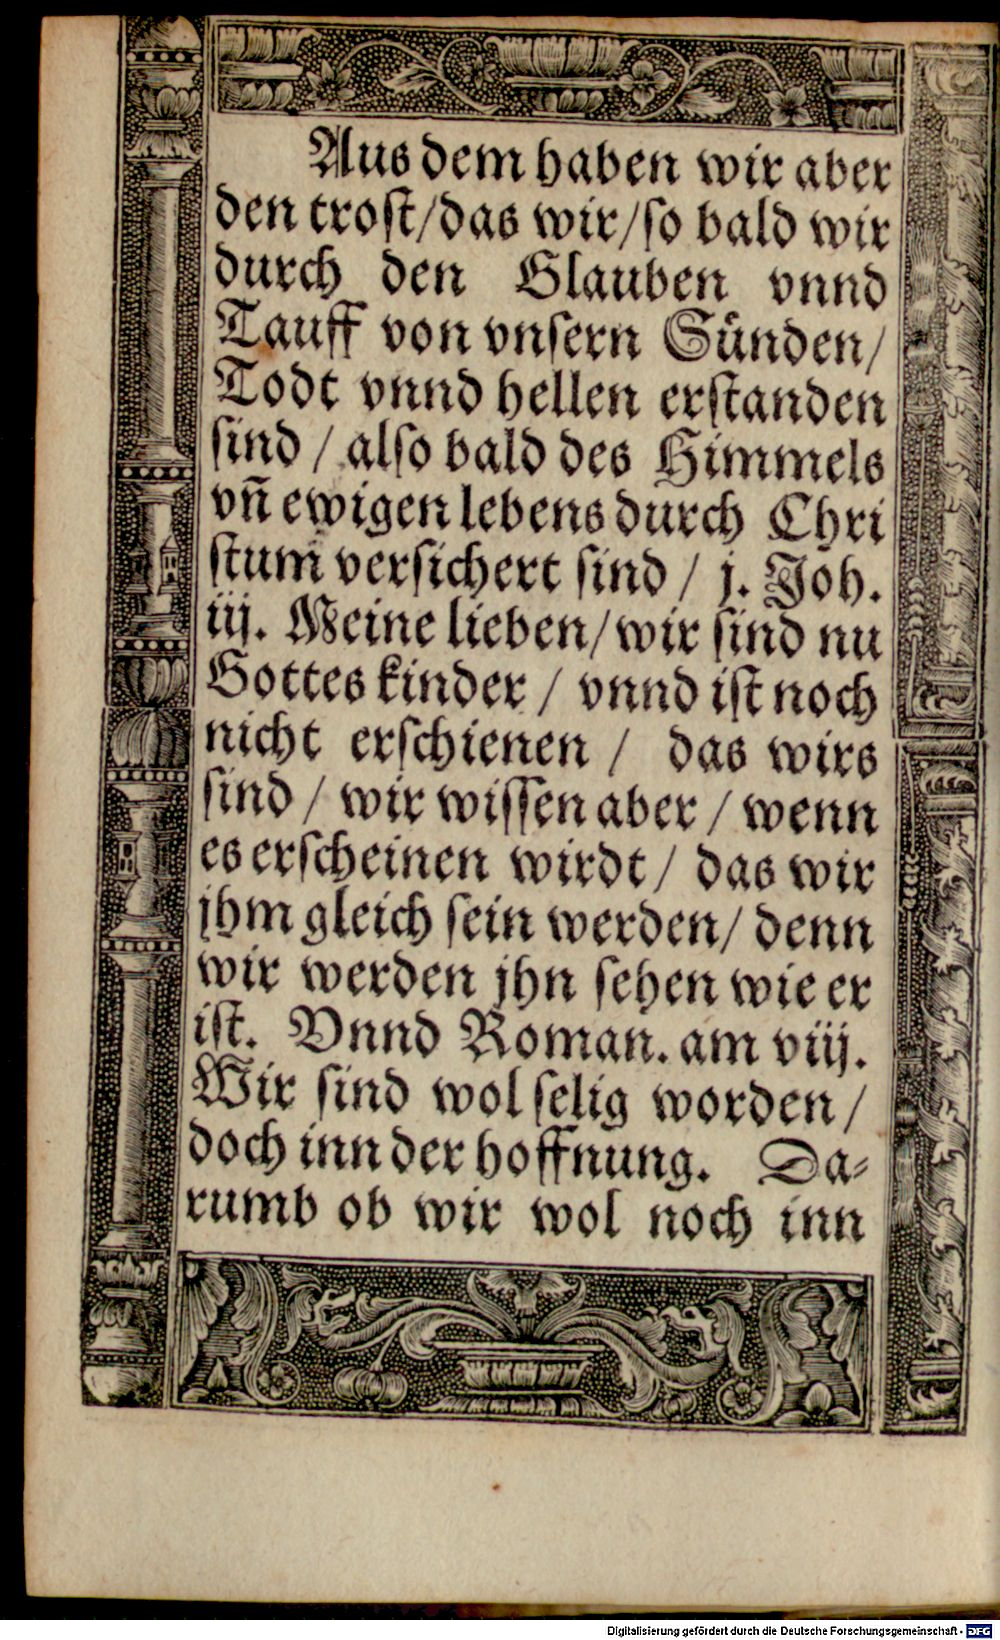 Aus dem haben wir aber
den trost/das wir/so bald wir
durch den Glauben vnnd
Tauff von vnsern Sünden/
Todt vnnd hellen erstanden
sind / also bald des Himmels
vñ ewigen lebens durch Chri
stum versichert sind / j. Joh.
iij. Meine lieben/wir sind nu
Gottes kinder / vnnd ist noch
nicht erschienen / das wirs
sind / wir wissen aber / wenn
es erscheinen wirdt / das wir
jhm gleich sein werden/ denn
wir werden jhn sehen wie er
ist. Vnnd Roman. am viij.
Wir sind wol selig worden /
doch inn der hoffnung. Da-
rumb ob wir wol noch inn
Digitalisierung gefördert durch die Deutsche Forschungsgemeinschaft - DFG